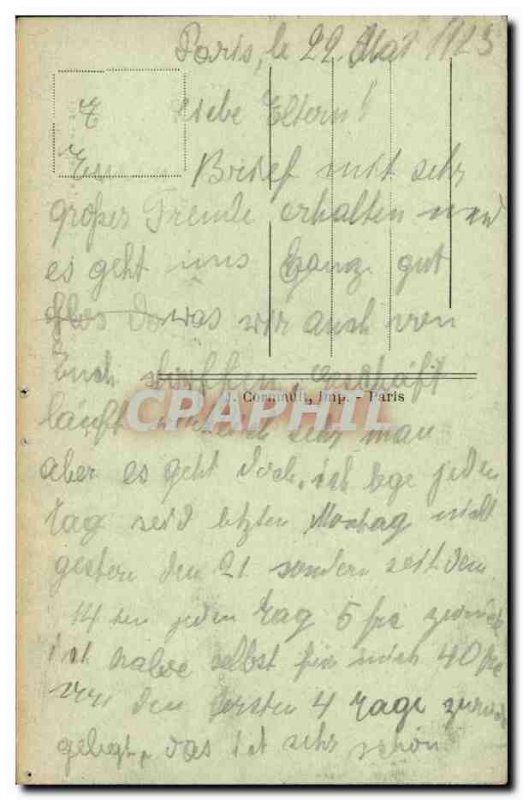 Paris, le 22. Mai 1923
Liebe Eltern!
Brief mit sehr
großer Freude erhalten und
es geht uns Ganz gut
was wir auch von
Euch hoffen, Geschäft
J. Cormault, Imp. - Paris
CPAPHIL
lauft sehr mau
aber es geht doch, ich lege jeden
Tag seid letzten Montag nicht
gestern den 21 sondern seit dem
14 ten jeden Tag 5 frc zurück
ich habe selbst für mich 40 frc
von den ersten 4 Tage zurück
gelegt, das ist sehr schön